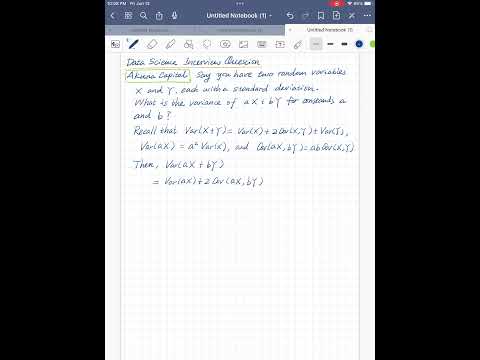 10:08 PM Fri Jun 13
85%
Untitled Notebook (1)
Untitled Notebook
Untitled Notebook (1)
Data Science Interview Question
Akuna Capital Say you have two random variables
X and Y, each with a standard deviation.
What is the variance of aX + bY for constants a
and b?
Recall that Var(X+Y) = Var(X) + 2Cov(X,Y) + Var(Y),
Var(aX) = a²Var(X), and Cov(aX, bY) = abCov(X,Y)
Then, Var(aX + bY)
= Var(aX) + 2 Cov(aX, bY)